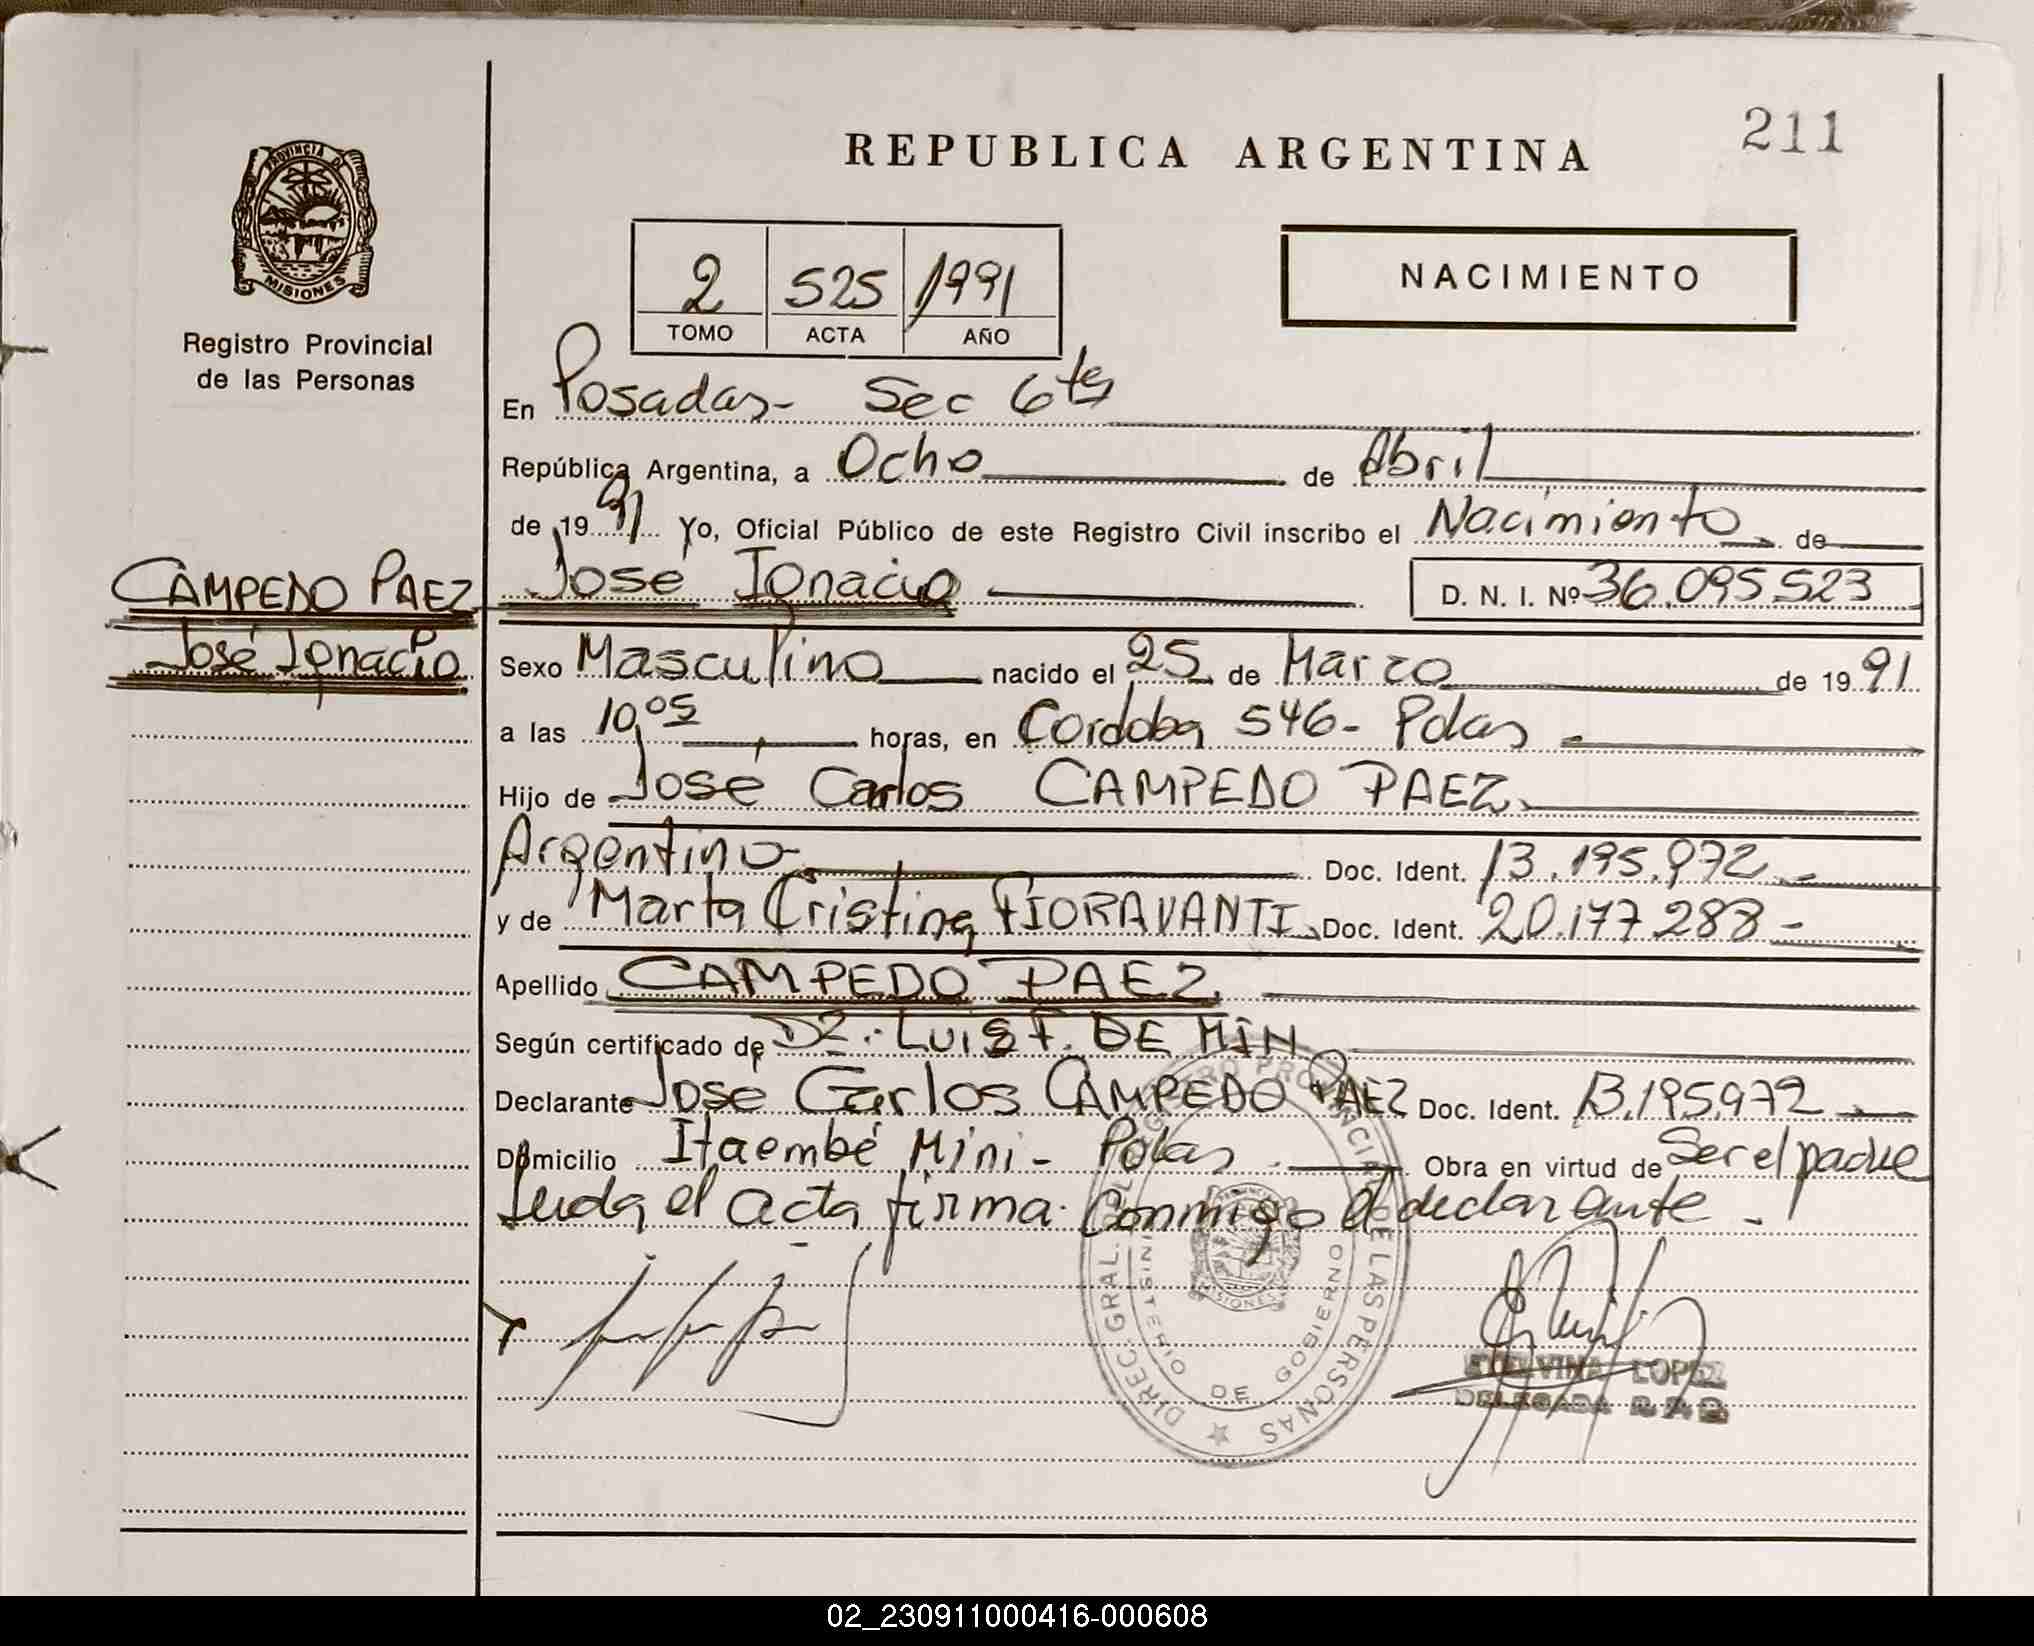 REPUBLICA ARGENTINA
211
PROVINCIA DE
MISIONES
Registro Provincial
de las Personas
2 525 1991
TOMO ACTA AÑO
NACIMIENTO
En Posadas- Sec 6ta
República Argentina, a Ocho de Abril
de 1991 Yo, Oficial Público de este Registro Civil inscribo el Nacimiento de
CAMPEDO PAEZ
José Ignacio
José Ignacio D. N. I. Nº 36.095.523
Sexo Masculino nacido el 25 de Marzo de 1991
a las 10,05 horas, en Cordoba 546- Pdas
Hijo de José Carlos CAMPEDO PAEZ
Argentino Doc. Ident. 13.195.972
y de Marta Cristina FIORAVANTI Doc. Ident. 20.177.288-
Apellido CAMPEDO PAEZ
Según certificado de Dr. LUIS F. DE MIN
Declarante José Carlos CAMPEDO PAEZ Doc. Ident. 13.195.972
Domicilio Itaembé Mini- Pdas Obra en virtud de Ser el padre
Leida el acta firma conmigo el declarante-
DIREC. GRAL. DEL REGISTRO PROVINCIAL DE LAS PERSONAS
MINISTERIO DE GOBIERNO
MISIONES
LOPEZ
DELEGADA
02_230911000416-000608